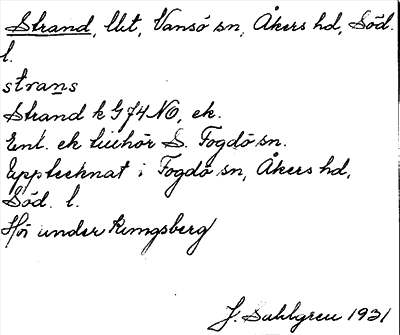 Strand, lht, Vansö sn, Åkers hd, Söd.
l.
strans
Strand k G74NO, ek.
Enl. ek tillhör S. Fogdö sn.
Upptecknat i Fogdö sn, Åkers hd,
Söd. l.
Hör under Kungsberg
J. Sahlgren 1931